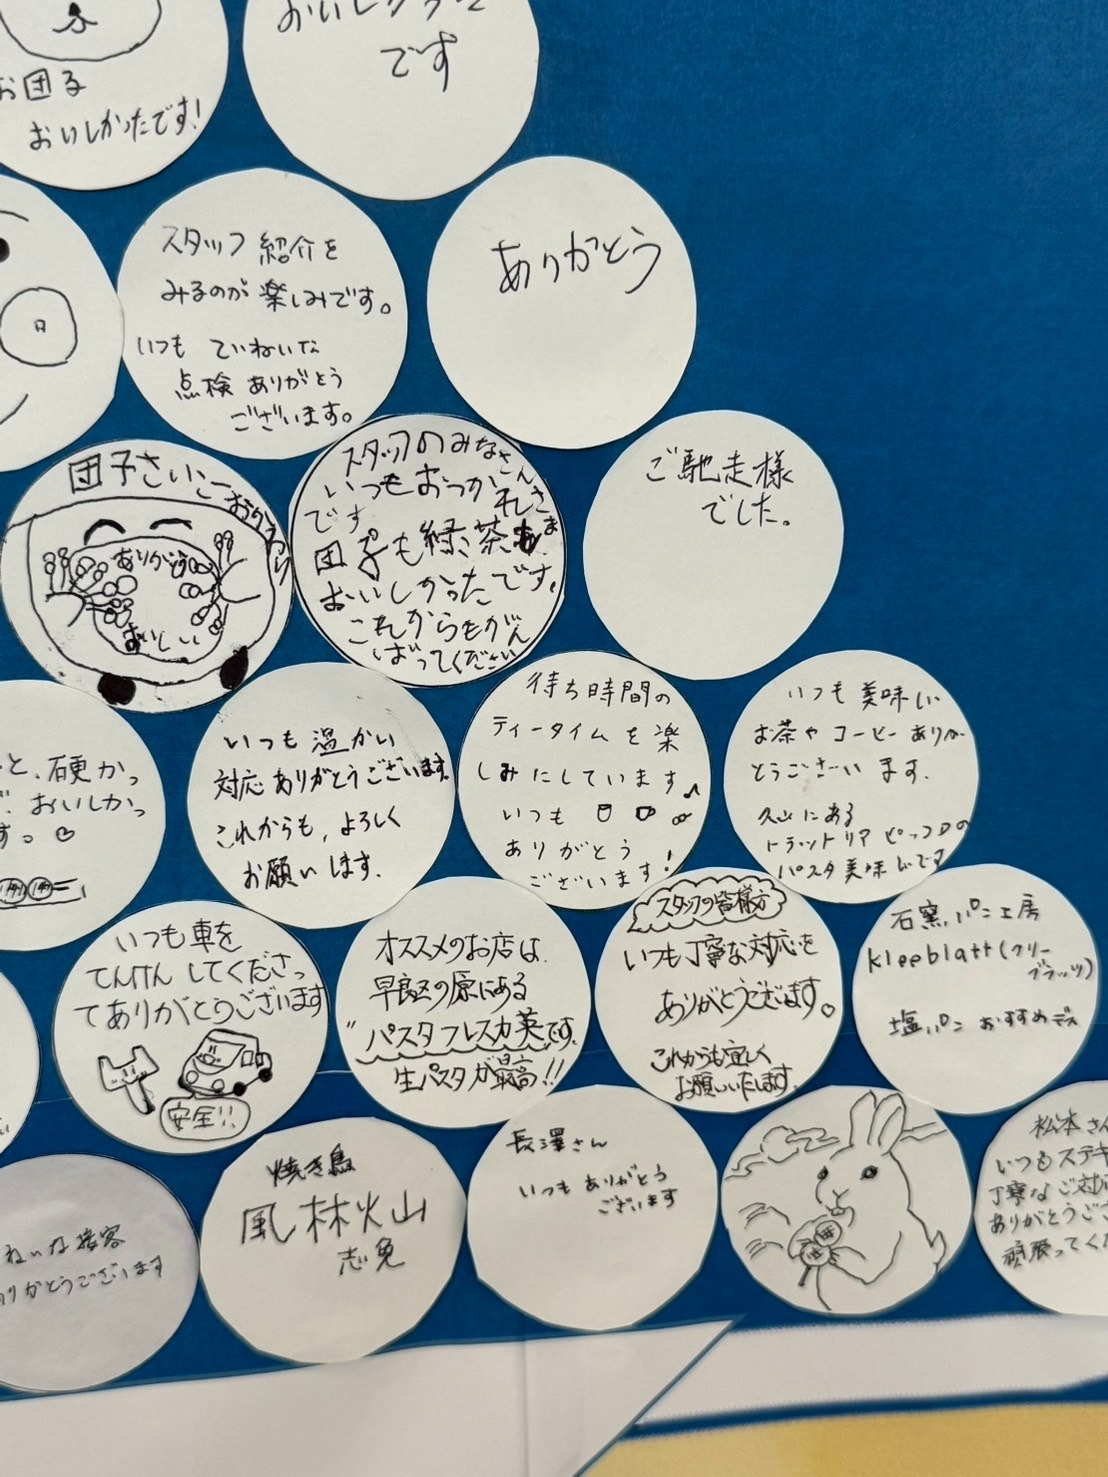 お団る
おいしかったです!
です
スタッフ紹介を
みるのが楽しみです。
いつも ていねいな
点検ありがとう
ございます。
ありがとう
団子さいこー
ありがとう
おいしい
スタッフのみなさん
いつもおつかれさま
です
団子も緑茶も
おいしかったです。
これからもがん
ばってください
ご馳走様
でした。
と、硬かっ
おいしかっ
す。♡
いつも温かい
対応ありがとうございます。
これからも、よろしく
お願いします。
待ち時間の
ティータイムを楽
しみにしています♪
いつも
ありがとう
ございます!
いつも美味しい
お茶やコーヒーありが
とうございます.
久山にある
トラットリア ピッコロの
パスタ美味しいです
いつも車を
てんけんしてくださっ
てありがとうございます
安全!!
オススメのお店は、
早良区の原にある
"パスタフレスカ英"です。
生パスタが最高!!
スタッフの皆様方
いつも丁寧な対応を
ありがとうございます。♡
これからも宜しく
お願いいたします。
石窯パン工房
kleeblatt(クリー
ブラッツ)
塩パン おすすめデス
ねいな接客
りがとうございます
焼き鳥
風林火山
志免
長澤さん
いつも ありがとう
ございます
松本さん
いつもステキ
丁寧なご対応
ありがとうござ
頑張ってくだ